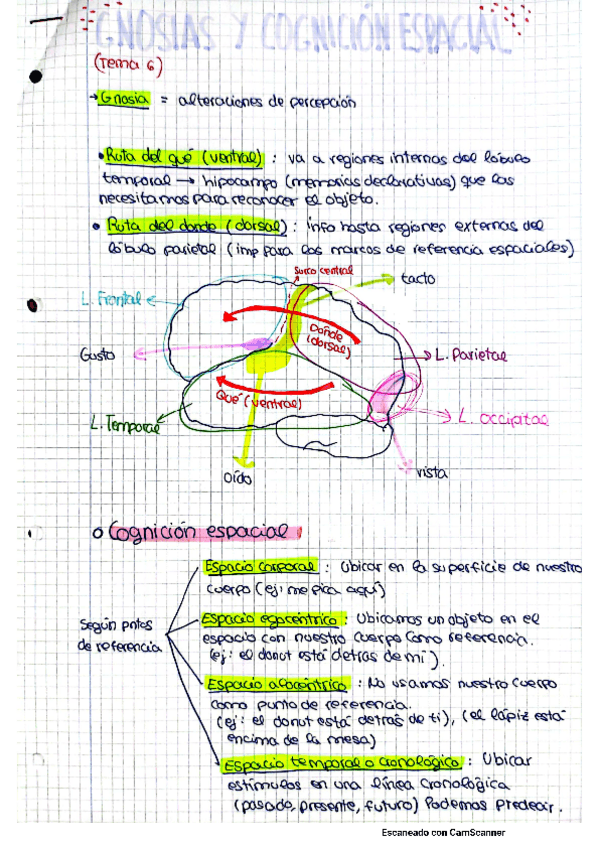 GNOSIAS Y COGNICIÓN ESPACIAL
(Tema 6)
→ Gnosia = alteraciones de percepción
• Ruta del qué (ventral) : va a regiones internas del lóbulo
temporal → hipocampo (memorias declarativas) que las
necesitamos para reconocer el objeto.
• Ruta del donde (dorsal) : info hasta regiones externas del
lóbulo parietal (imp para los marcos de referencia espaciales)
Surco central
tacto
L. Frontal
Dónde
(dorsal)
Gusto
L. Parietal
Qué (ventral)
L. Temporal
L. occipital
Oído
vista
o Cognición espacial
Espacio corporal : Ubicar en la superficie de nuestro
cuerpo (ej: me pica aquí)
Según pntos
de referencia
Espacio egocéntrico : Ubicamos un objeto en el
espacio con nuestro cuerpo como referencia.
(ej: el donut está detras de mi).
Espacio alocéntrico : No usamos nuestro cuerpo
como punto de referencia.
(ej: el donut está detrás de ti), (el lápiz está
encima de la mesa)
Espacio temporal o cronológico : Ubicar
estímulos en una línea cronológica
(pasado, presente, futuro) Podemos predecir.
Escaneado con CamScanner